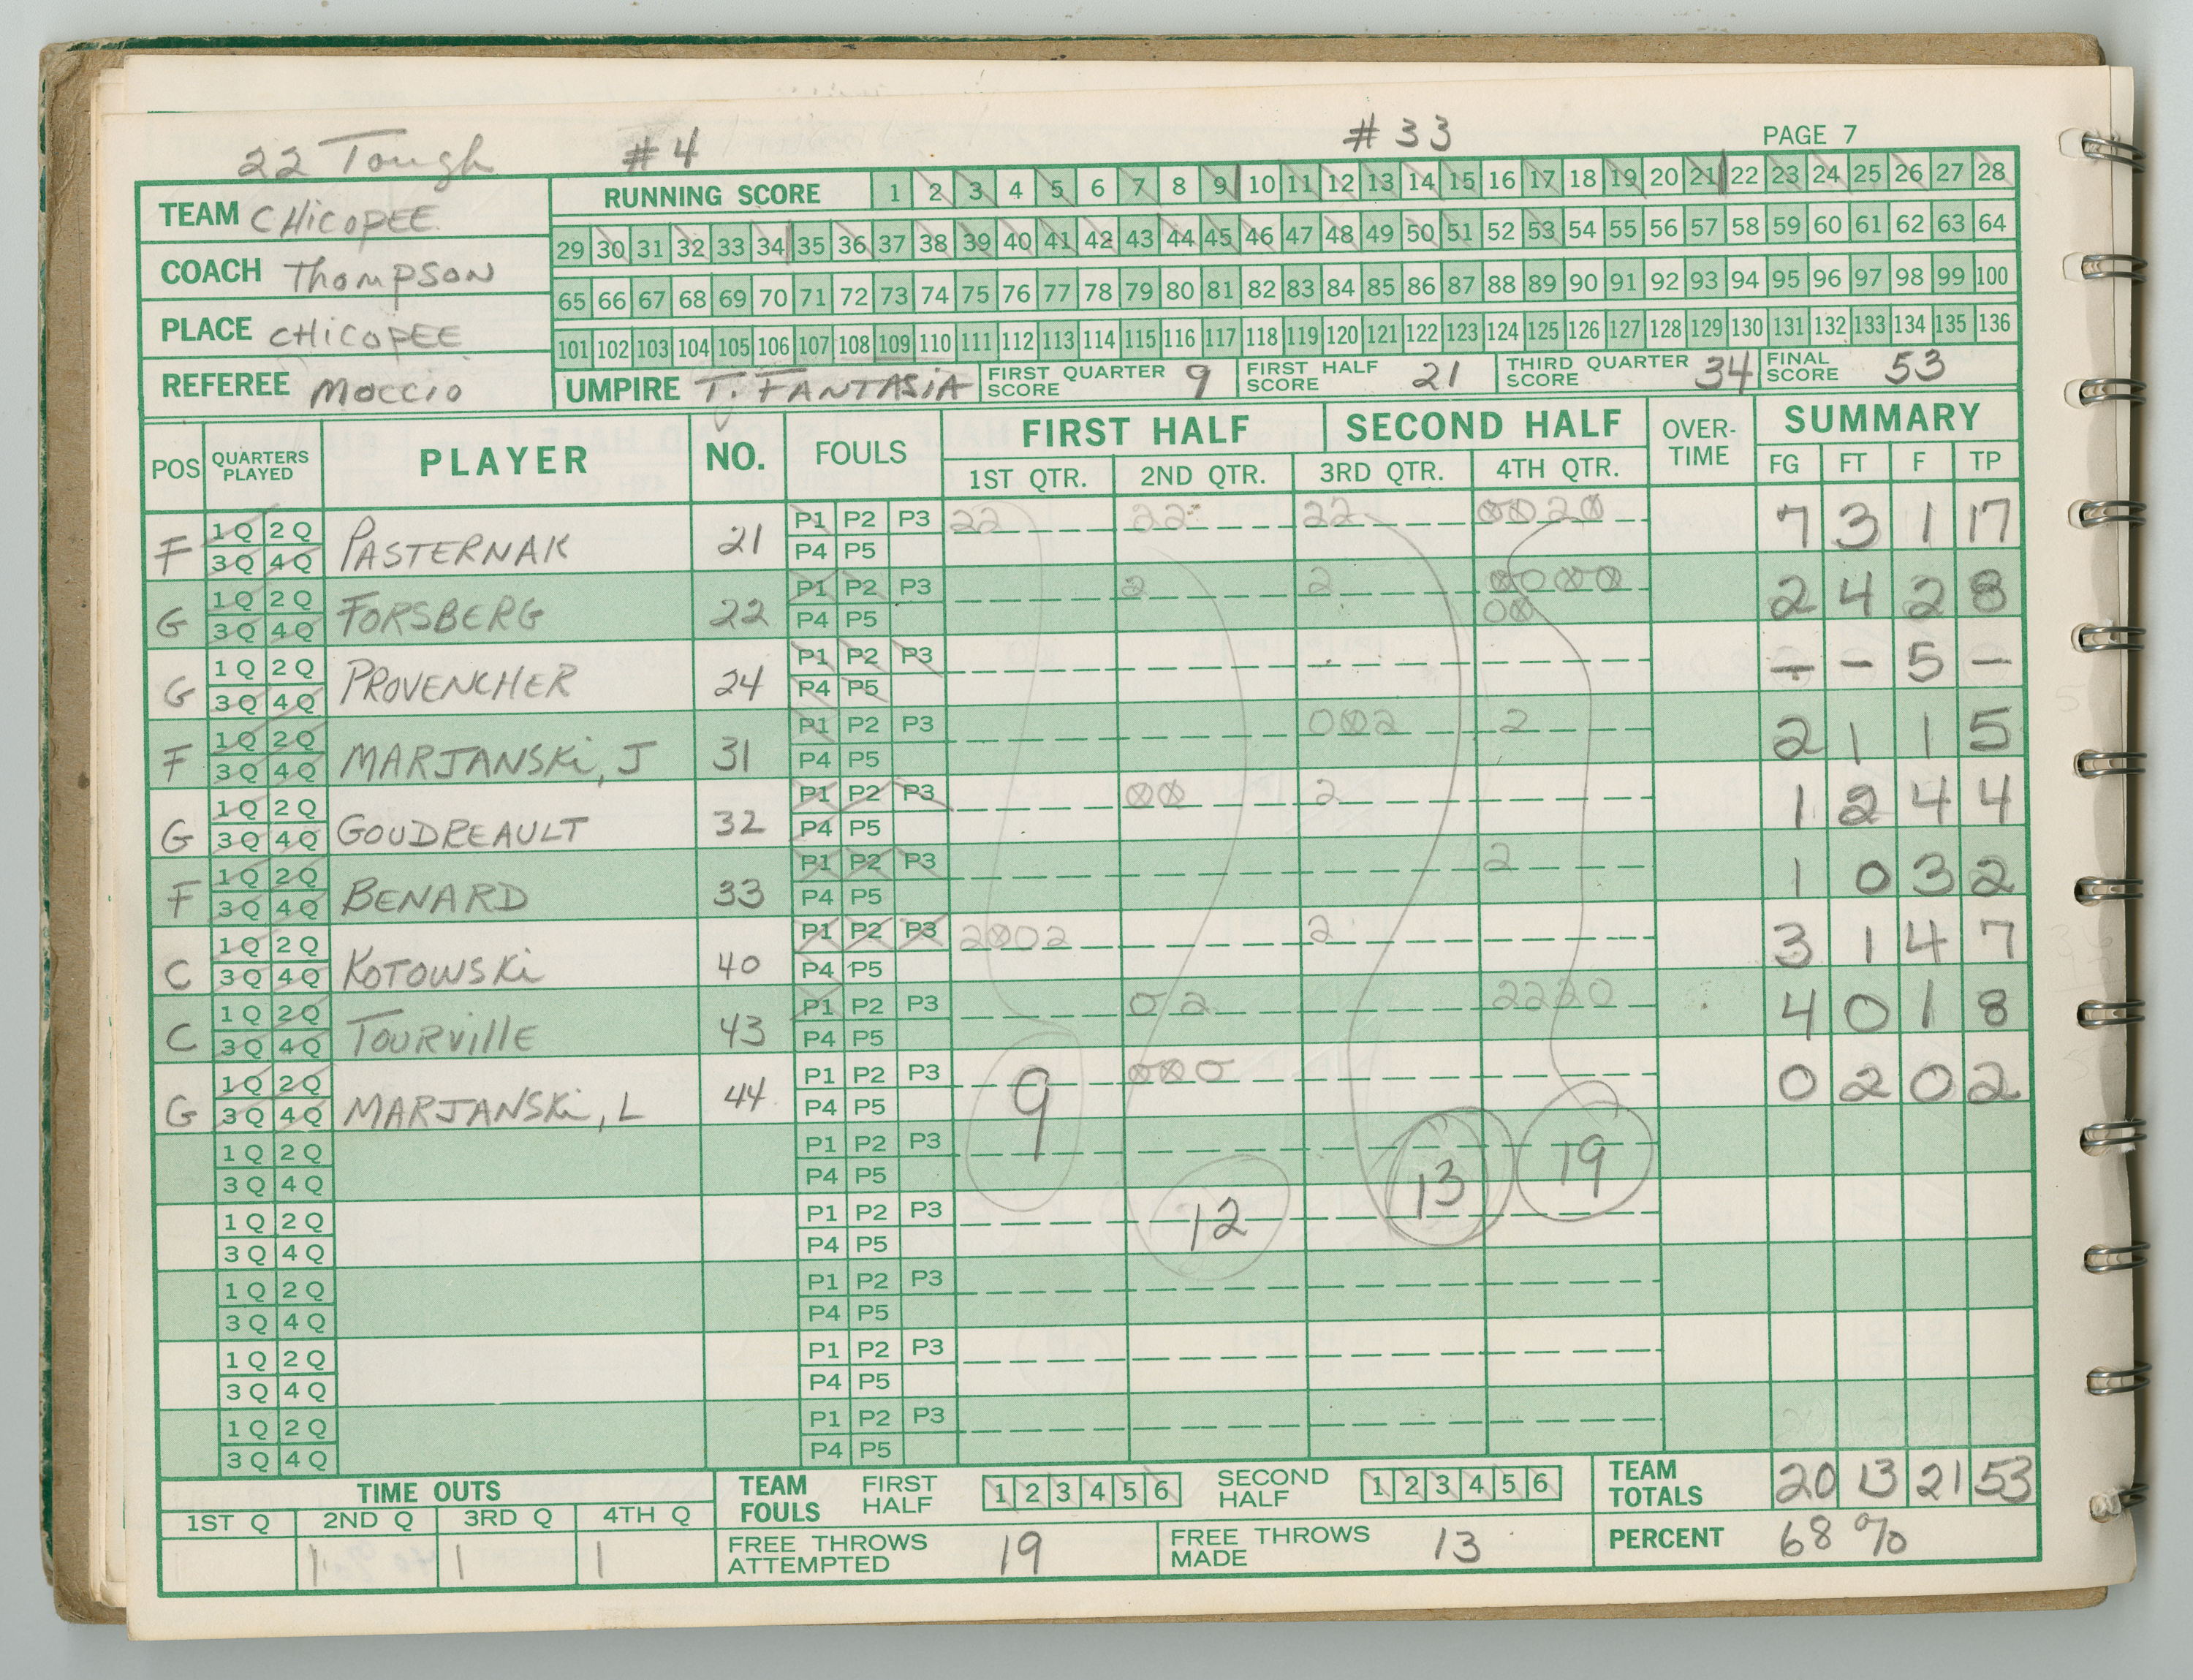 22 Tough #4 #33 PAGE 7
TEAM CHICOPEE
COACH THOMPSON
PLACE CHICOPEE
REFEREE MOCCIO
RUNNING SCORE 1 2 3 4 5 6 7 8 9 10 11 12 13 14 15 16 17 18 19 20 21 22 23 24 25 26 27 28
29 30 31 32 33 34 35 36 37 38 39 40 41 42 43 44 45 46 47 48 49 50 51 52 53 54 55 56 57 58 59 60 61 62 63 64
65 66 67 68 69 70 71 72 73 74 75 76 77 78 79 80 81 82 83 84 85 86 87 88 89 90 91 92 93 94 95 96 97 98 99 100
101 102 103 104 105 106 107 108 109 110 111 112 113 114 115 116 117 118 119 120 121 122 123 124 125 126 127 128 129 130 131 132 133 134 135 136
UMPIRE T. FANTASIA FIRST QUARTER SCORE 9 FIRST HALF SCORE 21 THIRD QUARTER SCORE 34 FINAL SCORE 53
POS QUARTERS PLAYED PLAYER NO. FOULS FIRST HALF SECOND HALF OVER-TIME SUMMARY
1ST QTR. 2ND QTR. 3RD QTR. 4TH QTR. FG FT F TP
F 1Q 2Q PASTERNAK 21 P1 P2 P3 22 22 22 0020 7 3 1 17
3Q 4Q P4 P5
G 1Q 2Q FORSBERG 22 P1 P2 P3 2 2 0000 2 4 2 8
3Q 4Q P4 P5 00
G 1Q 2Q PROVENCHER 24 P1 P2 P3 - - 5 -
3Q 4Q P4 P5
F 1Q 2Q MARJANSKI, J 31 P1 P2 P3 002 2 2 1 1 5
3Q 4Q P4 P5
G 1Q 2Q GOUDREAULT 32 P1 P2 P3 00 2 1 2 4 4
3Q 4Q P4 P5
F 1Q 2Q BENARD 33 P1 P2 P3 2 1 0 3 2
3Q 4Q P4 P5
C 1Q 2Q KOTOWSKI 40 P1 P2 P3 2002 2 3 1 4 7
3Q 4Q P4 P5
C 1Q 2Q TOURVILLE 43 P1 P2 P3 0 2 2220 4 0 1 8
3Q 4Q P4 P5
G 1Q 2Q MARJANSKI, L 44 P1 P2 P3 9 000 0 2 0 2
3Q 4Q P4 P5
1Q 2Q P1 P2 P3 13 19
3Q 4Q P4 P5
1Q 2Q P1 P2 P3 12
3Q 4Q P4 P5
1Q 2Q P1 P2 P3
3Q 4Q P4 P5
1Q 2Q P1 P2 P3
3Q 4Q P4 P5
1Q 2Q P1 P2 P3
3Q 4Q P4 P5
TIME OUTS TEAM FOULS FIRST HALF 1 2 3 4 5 6 SECOND HALF 1 2 3 4 5 6 TEAM TOTALS 20 13 21 53
1ST Q 2ND Q 3RD Q 4TH Q
1 1 1 FREE THROWS ATTEMPTED 19 FREE THROWS MADE 13 PERCENT 68%